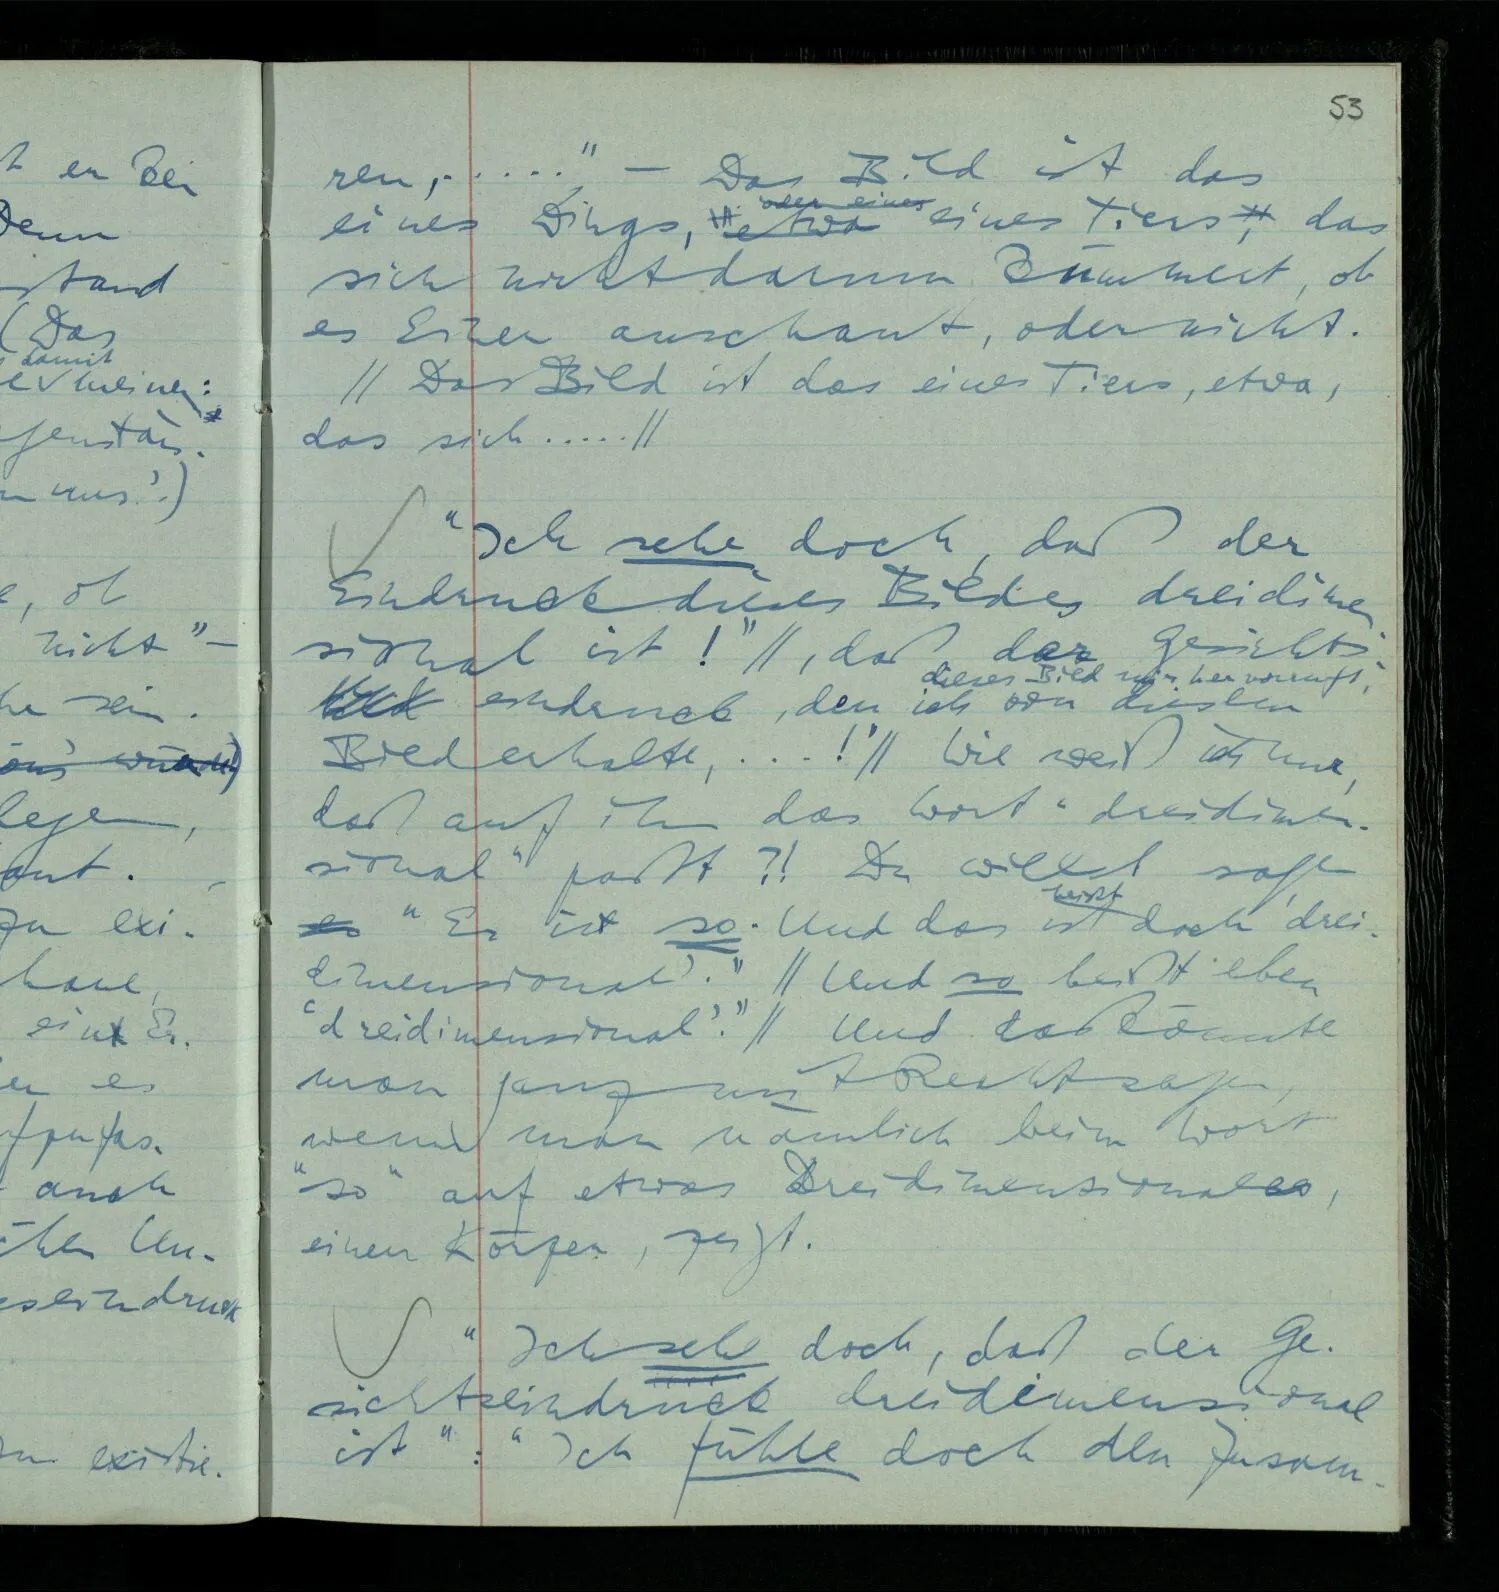 t er bei
Denn
stand
(Das
damit
meinen:
genstän-
uns'.)
, ob
nicht" –
sein.
würde)
legen,
aut.
zu exi-
haue,
ein Er-
en es
auch
chen Un-
seindruck
zu existie-
53
ren, ....." – Das Bild ist das
oder eines
eines Dings, etwa eines Tiers, das
sich nicht darum kümmert, ob
es Einer anschaut, oder nicht.
// Das Bild ist das eines Tiers, etwa,
das sich.....//
"Ich sehe doch, daß der
Eindruck dieses Bildes dreidimen-
sional ist!"//, daß der Gesichts-
dieses Bild mir hervorruft,
eindruck, den ich von diesem
Bild erhalte, ....!"// Wie weiß ich nur,
daß auf ihn das Wort "dreidimen-
sional" paßt?! Du willst sagen
heißt
es "Er ist so. Und das ist doch 'drei-
dimensional'." // Und so heißt eben
'dreidimensional'."// Und das könnte
man ganz mit Recht sagen,
wenn man nämlich beim Wort
"so" auf etwas Dreidimensionales,
einen Körper, zeigt.
"Ich sehe doch, daß der Ge-
sichtseindruck dreidimensional
ist": "Ich fühle doch den Zusam-